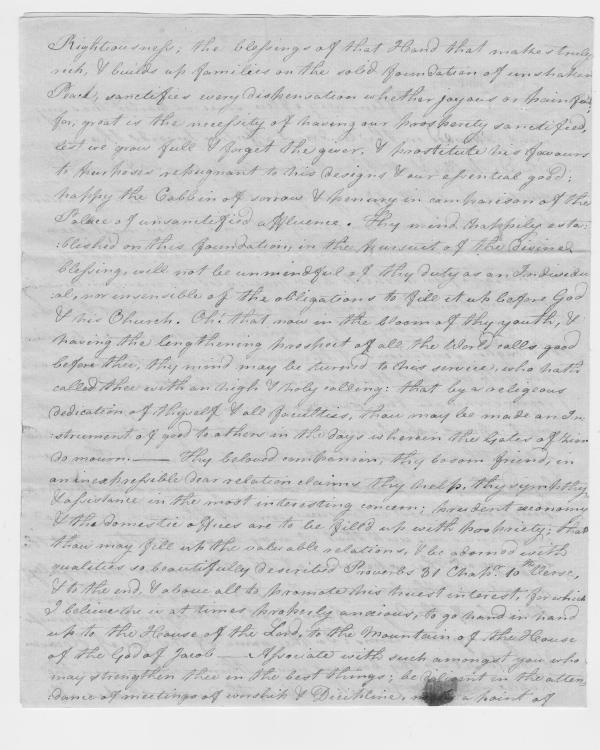 Righteousness; the blessings of that Hand that makes truly
rich, & builds up families on the solid foundation of unshaken
Peace, sanctifies every dispensation whether joyous or painful;
for, great is the necessity of having our prosperity sanctified,
lest we grow full & forget the giver, & prostitute his favours
to purposes repugnant to his designs & our essential good;
happy the Cabbin of sorrow & penury in comparison of the
Palace of unsanctified affluence. Thy mind happily esta-
:blished on this foundation, in the pursuit of the Divine
blessing, will not be unmindful of thy duty as an Individu
al, nor insensible of the obligations to fill it up before God
& his Church. Oh! that now in the bloom of thy youth, &
having the lengthening prospect of all the World calls good
before thee, thy mind may be turned to his service, who hath
called thee with an high & holy calling: that by a religeous
dedication of thyself & all faculties, thou may be made an In-
strument of good to others in the days wherein the Gates of Zion
do mourn. — Thy beloved companion, thy bosom friend, in
an inexpressible dear relation claims thy help, thy sympthy
& assistance in the most interesting concern; president œconomy
& the domestic offices are to be filled up with propriety; that
thou may fill up the valuable relations, & be adorned with
qualities so beautifully described Proverbs 31 Chapr. 10th Verse,
& to the end, & above all to promote his truest interest, for which
I believe he is at times properly anxious, to go hand in hand
up to the House of the Lord, to the Mountain of the House
of the God of Jacob — Associate with such amongst you who
may strengthen thee in the best things; be diligent in the atten-
:dance of meetings of worship & Discipline, a point of